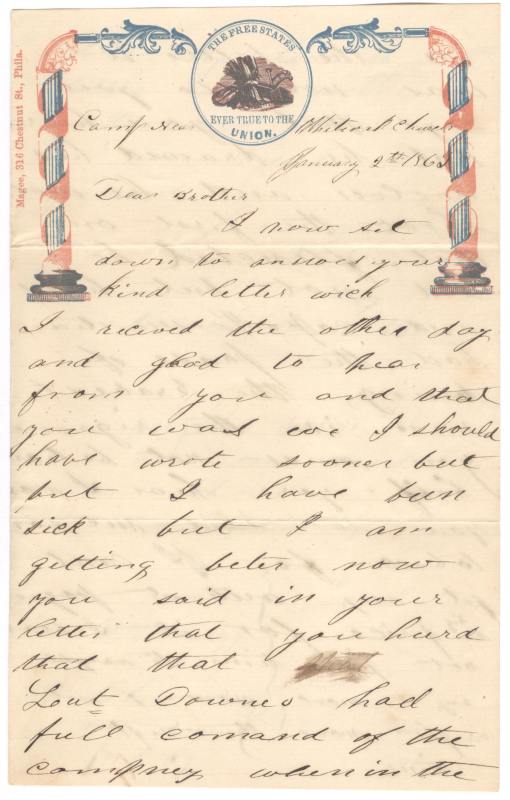 THE FREE STATES
EVER TRUE TO THE
UNION.
Magee, 316 Chestnut St., Phila.
Camp Near Whiteoak Church
January 2th 1863
Dear Brother
I now set
down to answer your
kind letter wich
I recived the other day
and glad to hear
from you and that
you was I should
have wrote sooner but
but I have bun
sick but I am
getting beter now
you said in your
letter that you hurd
that that
Lout Downes had
full comand of the
compney when in the